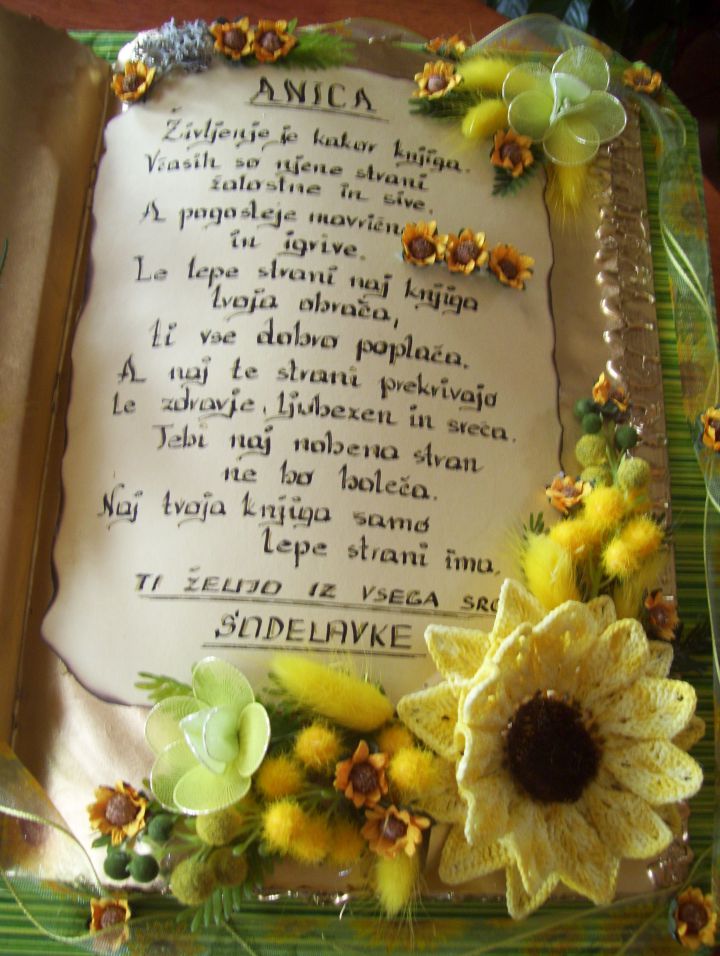 ANICA
Življenje je kakor knjiga.
Včasih so njene strani
žalostne in sive.
A pogosteje mavrične
in igrive.
Le lepe strani naj knjiga
tvoja obrača,
ti vse dobro poplača.
A naj te strani prekrivajo
le zdravje, ljubezen in sreča.
Tebi naj nobena stran
ne bo boleča.
Naj tvoja knjiga samo
lepe strani ima.
TI ŽELIJO IZ VSEGA SRC
SODELAVKE